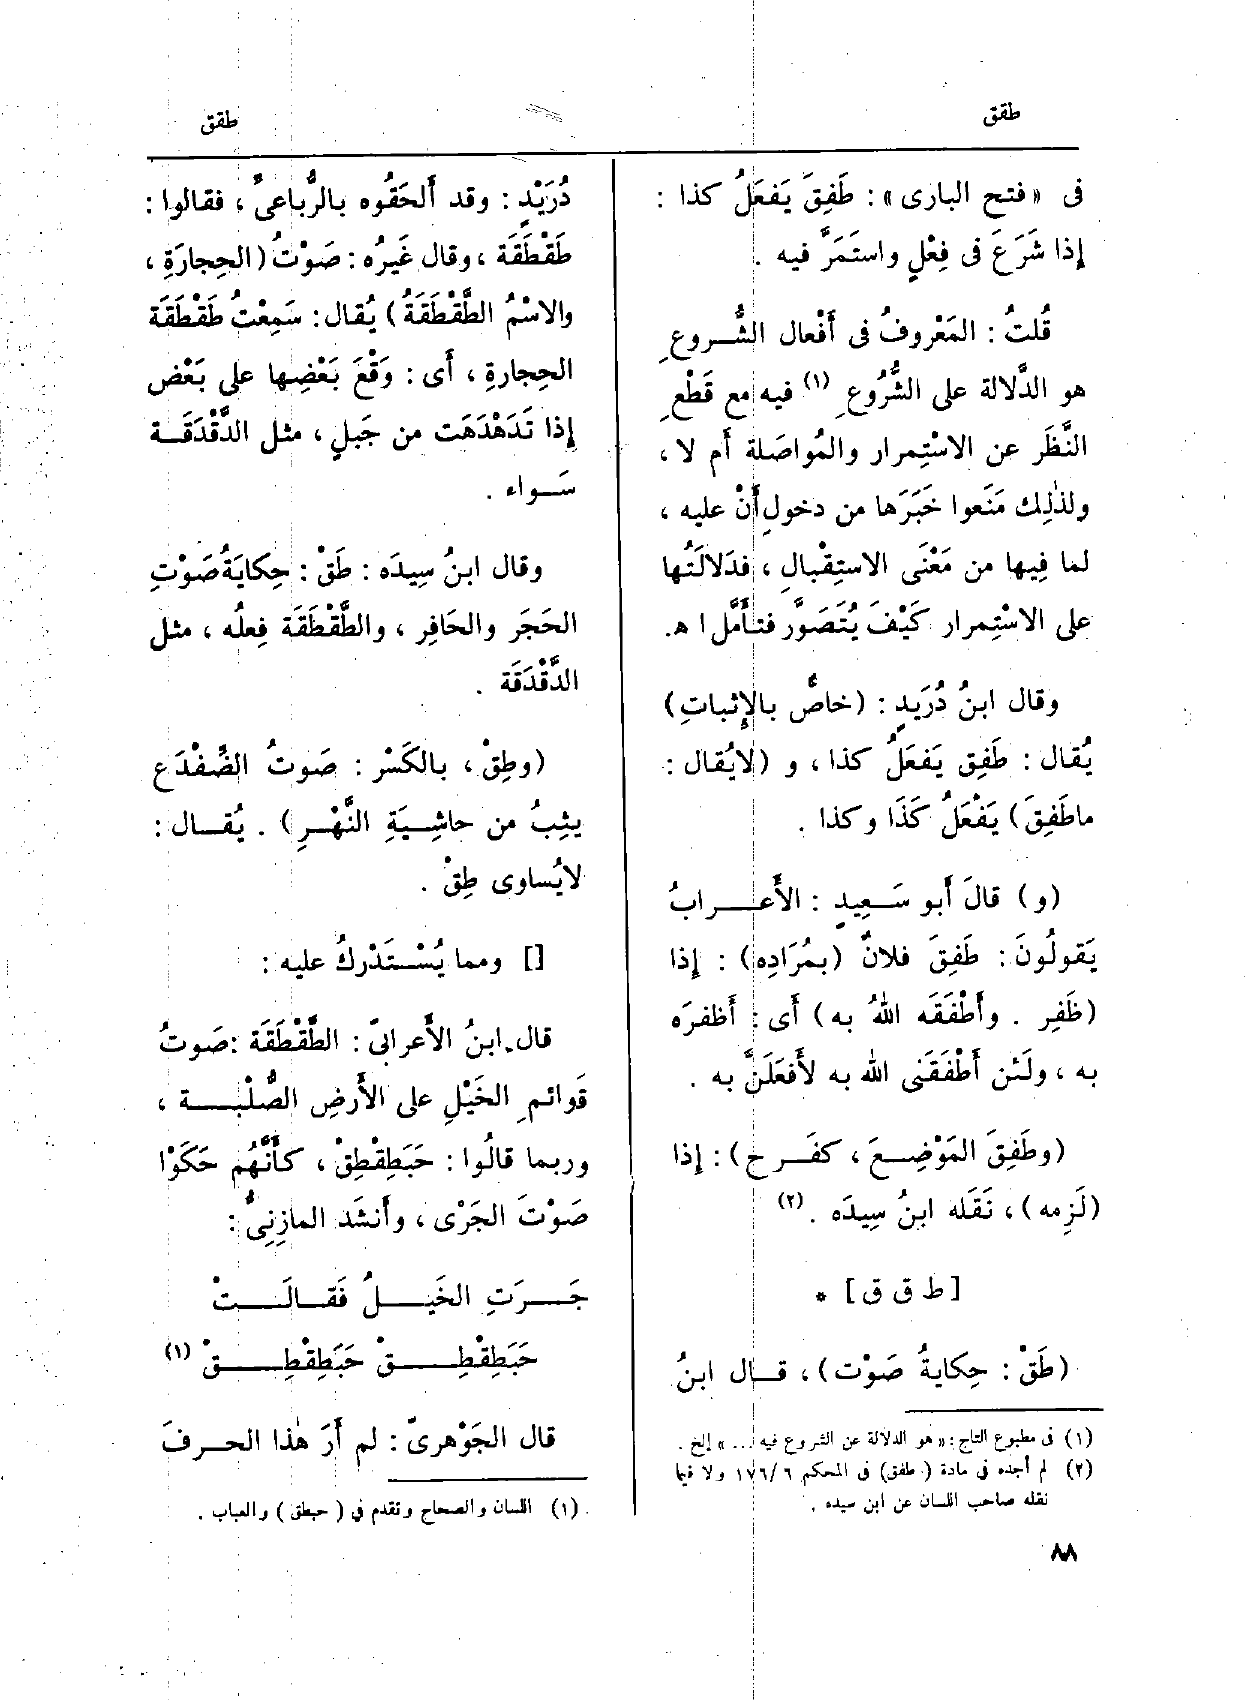 طقق
طقق
فى «فتح البارى»: طَفِقَ يَفعَلُ كذا :
إذا شَرَعَ فى فِعْلٍ واستَمَرَّ فيه .
قُلتُ : المَعْروفُ فى أَفْعال الشُّروعِ
هو الدَّلالة على الشُّرُوعِ (١) فيه مع قَطْعِ
النَّظَر عن الاسْتِمرار والمُواصَلة أم لا ،
ولذٰلِك مَنَعوا خَبَرَها من دخولِ أَنْ عليه ،
لما فِيها من مَعْنَى الاستِقْبالِ ، فدَلالَتُها
على الاسْتِمرار كَيْفَ يُتَصَوَّر فتأَمَّل ا ه.
وقال ابنُ دُرَيدٍ : (خاصٌّ بالإِثباتِ)
يُقال : طَفِق يَفعَلُ كذا ، و (لايُقال :
ماطَفِقَ) يَفْعَلُ كَذَا وكذا .
(و) قالَ أَبو سَعِيدٍ : الأَعرابُ
يَقولُونَ : طَفِقَ فلانٌ (بمُرَادِه) : إِذا
(ظَفِر . وأَطْفَقَه اللهُ به) أَى : أَظفرَه
به ، ولَئن أَطْفَقَنى الله به لأَفعَلَنَّ به .
(وطَفِقَ المَوْضِعَ ، كفَرح) : إِذا
(لَزِمه) ، نَقَله ابنُ سِيدَه . (٢)
[ ط ق ق ] *
(طَقْ : حِكايةُ صَوْت) ، قال ابنُ
(١) فى مطبوع التاج : «هو الدلالة عن الشروع فيه ... » إلخ .
(٢) لم أجده فى مادة (طفق) فى المحكم ٦/ ١٧٦ ولا فيما
نقله صاحب اللسان عن ابن سيده .
دُرَيْدٍ : وقد أَلحَقُوه بالرُّباعىِّ ، فقالوا :
طَقْطَقَة ، وقال غَيرُه : صَوْتُ (الحِجارَةِ ،
والاسْمُ الطَّقْطَقَةُ) يُقال : سَمِعْتُ طَقْطَقَة
الحِجارةِ ، أَى : وَقْعَ بَعْضِها على بَعْض
إِذا تَدَهْدَهَت من جَبلٍ ، مثل الدَّقْدَقَة
سَواء .
وقال ابنُ سِيدَه : طَقْ : حِكايَةُ صَوْتِ
الحَجَر والحَافِر ، والطَّقْطَقَة فِعلُه ، مثل
الدَّقْدَقَة .
(وطِقْ ، بالكَسْر : صَوتُ الضِّفْدَع
يثِبُ من حاشِيَةِ النَّهْرِ) . يُقال :
لايُساوى طِقْ .
[] ومما يُسْتَدْركُ عليه :
قال ابنُ الأَعرابىّ : الطَّقْطَقَة : صَوتُ
قَوائم الخَيْلِ على الأَرضِ الصُّلْبة ،
وربما قالُوا : حَبَطِقْطِقْ ، كأَنَّهُم حَكَوْا
صَوْتَ الجَرْى ، وأَنشَد المازِنِىُّ :
جَرَتِ الخَيلُ فَقالَتْ
حَبَطِقْطِقْ حَبَطِقْطِقْ (١)
قال الجَوْهرىّ : لم أَرَ هٰذا الحرفَ
(١) اللسان والصحاح وتقدم فى (حبطق) والعباب .
٨٨